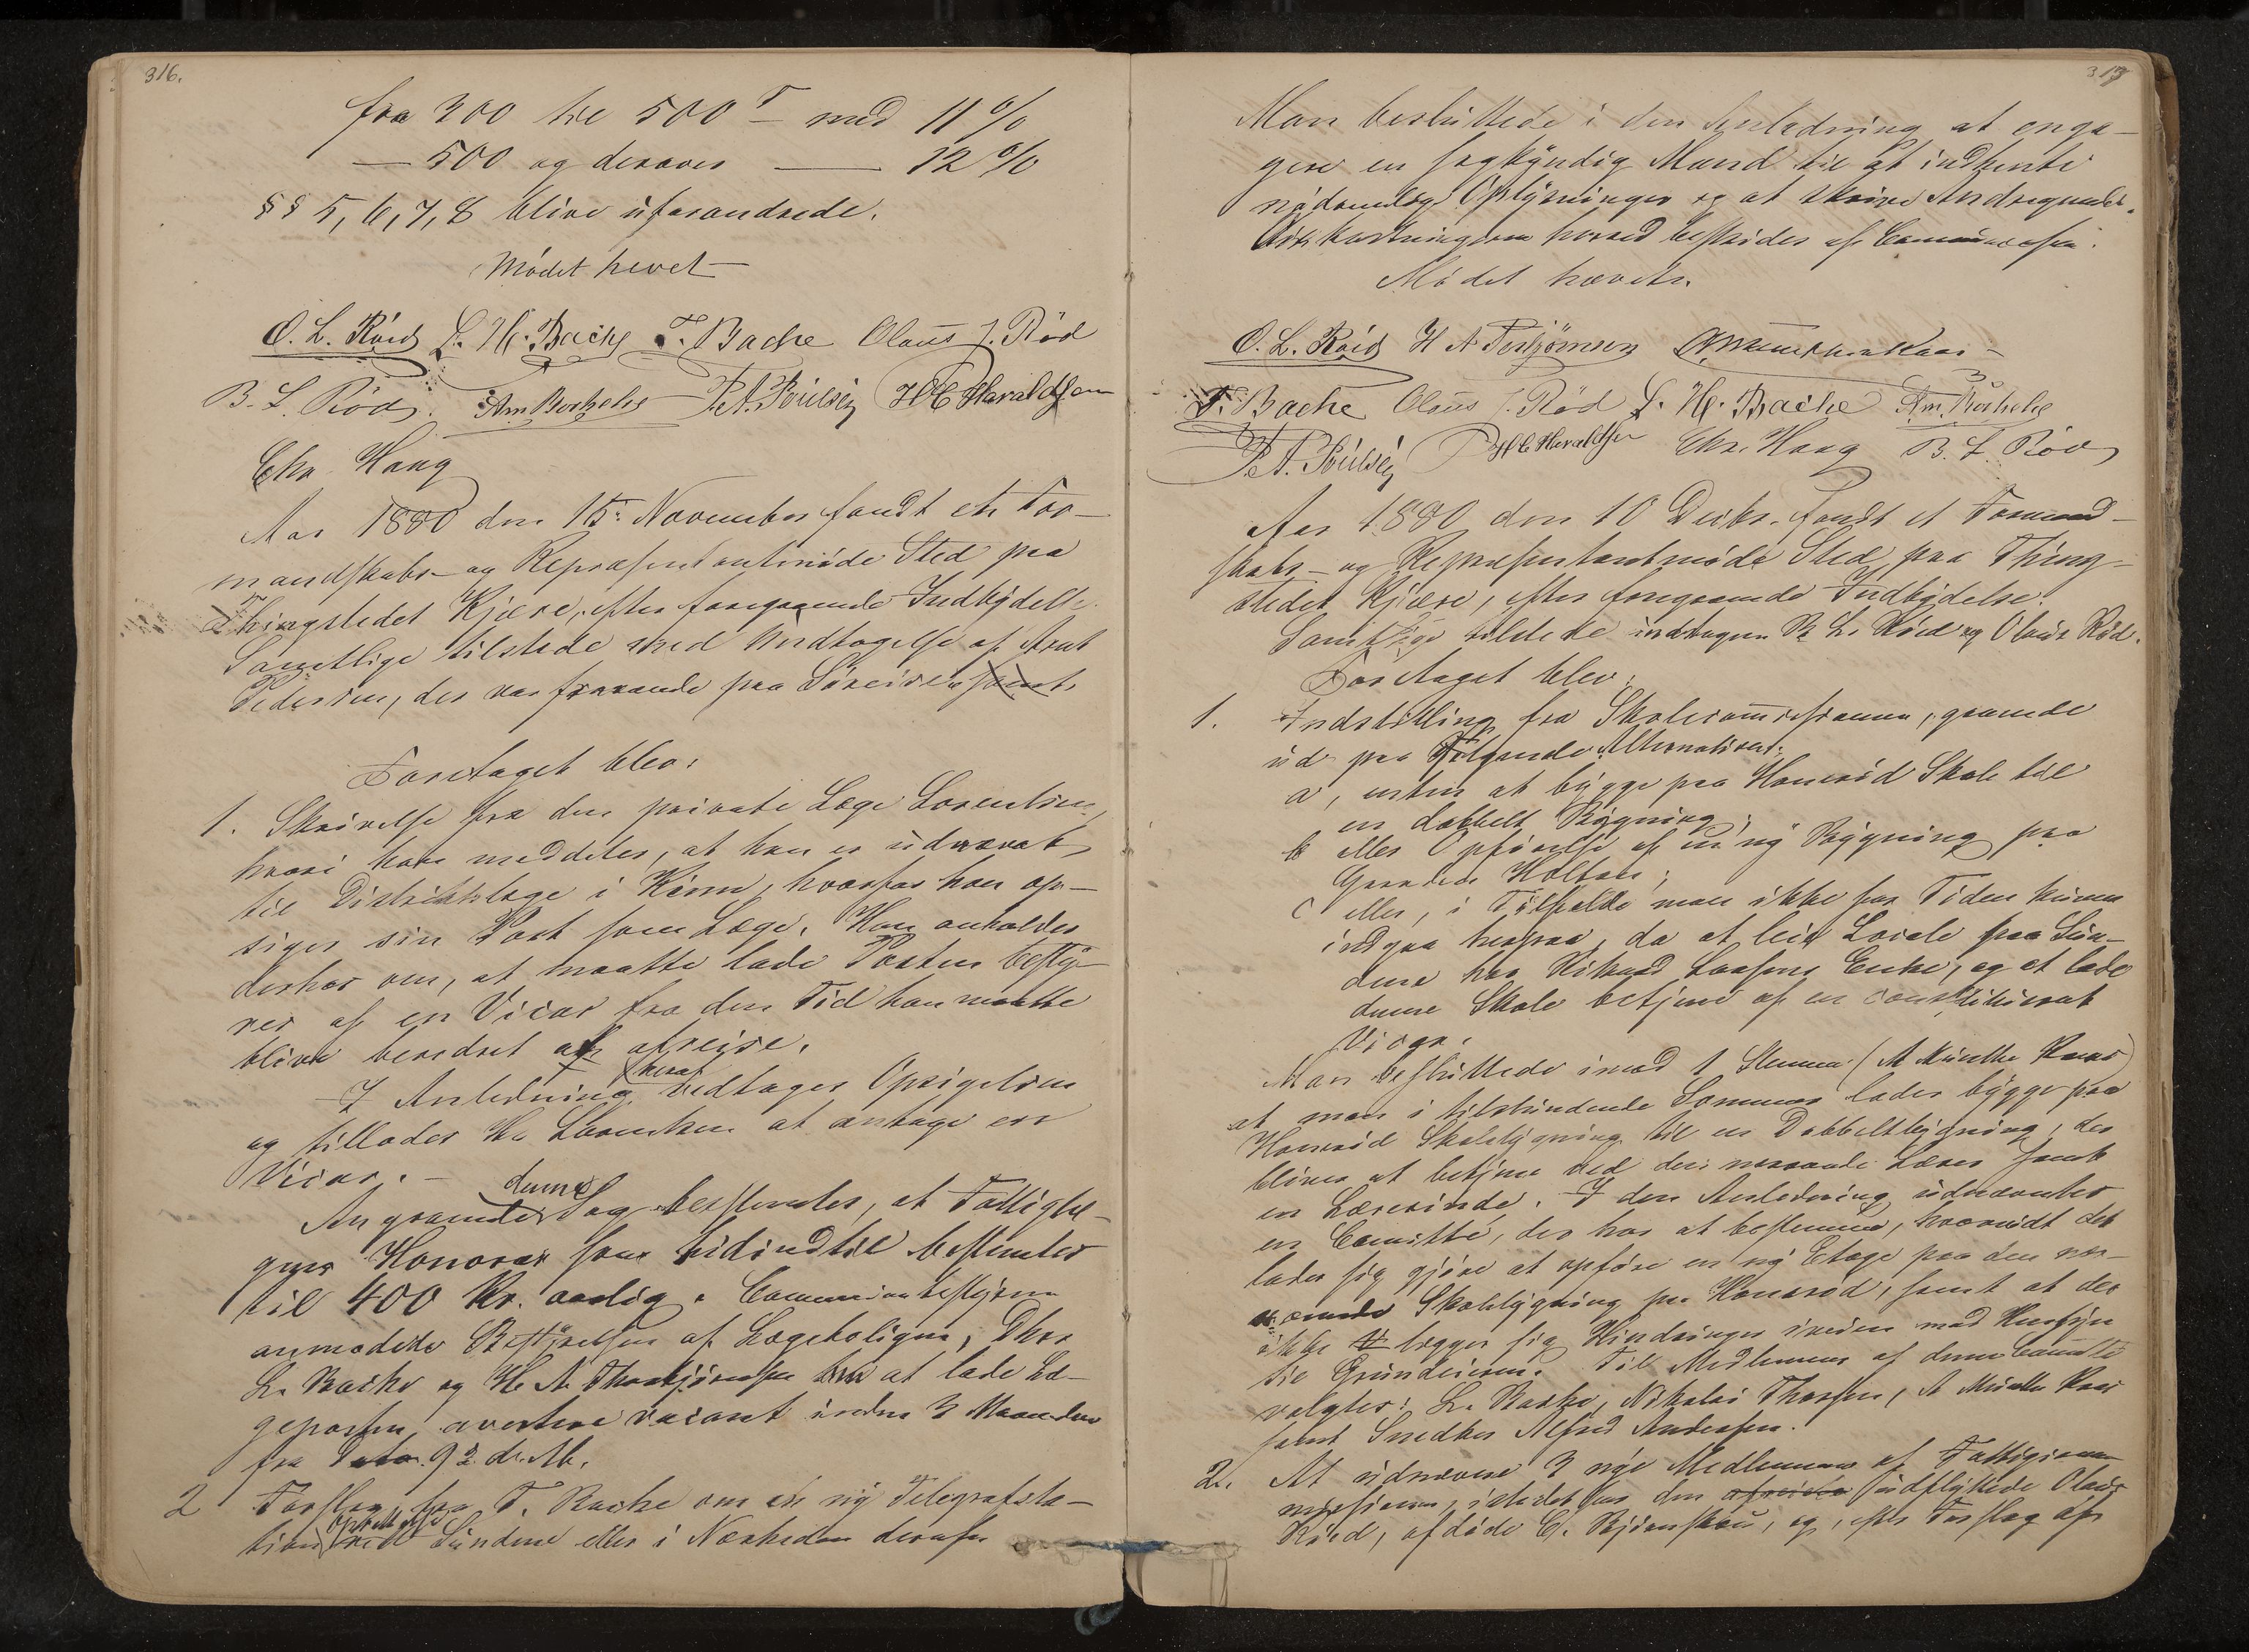 316.
fra 300 til 500 T – med 11 %
— 500 og derover — 12 %
§§ 5, 6, 7, 8 blive uforandrede.
Mødet hevet
O. L. Röed L. H. Bache T. Bache Olaus J. Röd
B. L. Röd. P. A. Poulsen H C Haraldsen
Chr. Haag
Aar 1880 den 15. November fandt et For-
mandskabs- og Repræsentantmøde Sted paa
Thingstedet Kjære, efter foregaaende Indbydelse.
Samtlige tilstede med Undtagelse af Arnt
Pedersen, der var fraværende paa Søreise samt
Foretaget blev:
1. Skrivelse fra den private Læge Lorentsen,
hvori han meddeler, at han er udnævnt
til Distriktslæge i Kinn, hvorfor han op-
siger sin Post som Læge. Han anholder
derhos om, at maatte lade Posten besty-
res af en Vicar fra den Tid han maatte
blive beredt at afreise.
I Anledning heraf vedtages Opsigelsen
og tillades Hr Lorentsen at antage en
Vicar. –
Angaaende denne Sag bestemtes, at Fattiglæ-
gens Honorar som hidindtil bestemtes
til 400 Kr. aarlig. Communebestyrelsen
anmodede Bestyrelsen af Lægeboligen, Dhrr
L. Bache og H. A. Thorbjørnsen om at lade Læ-
geposten avertere vacant inden 3 Maaneder
fra Dato. 9 d. M.
2 Forslag fra T. Bache om en ny Telegrafsta-
tion oprettet Sundene eller i Nærheden deraf.
317
Man besluttede i den Anledning at enga-
gere en sagkyndig Mand til at indhente
nødvendige Oplysninger og at skrive Andragende.
Omkostningerne herved bestrides af Communecassen.
Mødet hævet.
O. L. Röed H A Torbjörnsen A Munthe Kaas
T. Bache Olaus J. Röd L. H. Bache
P. A. Poulsen H C Haraldsen Chr. Haag B. L. Röd
Aar 1880 den 10 Decbr. fandt et Formand-
skabs- og Repræsentantmøde Sted paa Thing-
stedet Kjære, efter foregaaende Indbydelse.
Samtlige tilstede undtagen B. L. Röed og Olaus Röd.
Foretaget blev:
1. Indstilling fra Skolecommissionen, gaaende
ud paa følgende Alternativer:
a, enten at bygge paa Honerød Skole til
en dobbelt Bygning;
b eller Opførelse af en ny Bygning paa
Gaarden Holtan;
c eller, i Tilfælde man ikke for Tiden kunne
indgaa herpaa, da at leie Locale paa Sun-
dene hos Rikard Larsens Enke, og at lade
denne Skole betjene af en constitueret
Vicar.
Man besluttede imod 1 Stemme (A Munthe Kaas)
at man i tilstundende Sommer lader bygge paa
Honerød Skolebygning til en Dobbeltbygning, der
bliver at betjene ved den nærværende Lærer samt
en Lærerinde. I den Anledning udnævntes
en Comitté, der har at bestemme, hvorvidt det
lader sig gjøre at opføre en ny Etage paa den nær-
værende Skolebygning paa Honerød, samt at der
ikke lægger sig Hindringer iveien med Hensyn
til Grundeieren. Til Medlemmer af denne Comitté
valgtes: L. Bache, Nikolai Thorsen, A Munthe Kaas
samt Snedker Alfred Andersen.
2. At udnævne 3 nye Medlemmer af Fattigcom-
missionen, istedet for den afreiste udflyttede Olaus
Röed, afdøde C. Bjørnskau, og, efter Forslag af